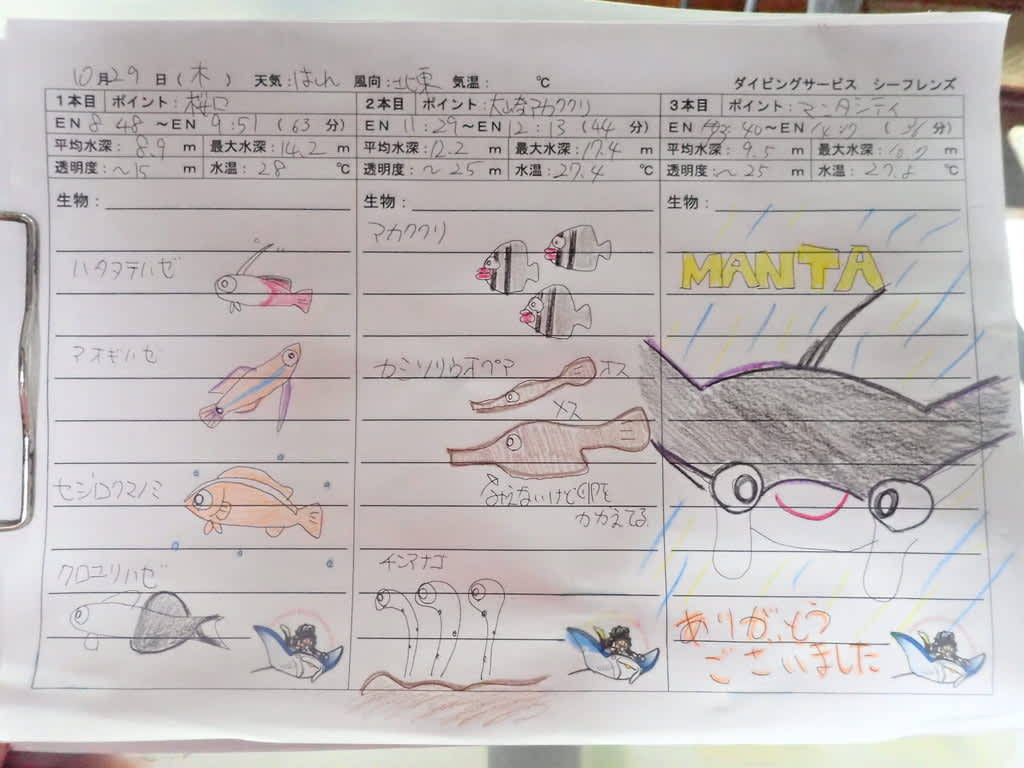 10月29日(木) 天気:はれ 風向:北東 気温: ℃ ダイビングサービス シーフレンズ
1本目 ポイント:桜口
EN 8:48 ～EN 9:51 (63分)
平均水深:8.9 m 最大水深:14.2 m
透明度:～15 m 水温:28 ℃
生物:
ハタタテハゼ
アオギハゼ
セジロクマノミ
クロユリハゼ
2本目 ポイント:大崎アカククリ
EN 11:29～EN 12:13 (44分)
平均水深:12.2 m 最大水深:17.4 m
透明度:～25 m 水温:27.4 ℃
生物:
アカククリ
カミソリウオペア オス
メス
みえないけど卵を
かかえてる
チンアナゴ
3本目 ポイント:マンタシティ
EN :40～EN ( 分)
平均水深:9.5 m 最大水深: m
透明度:～25 m 水温: ℃
生物:
MANTA
ありがとう
ございました